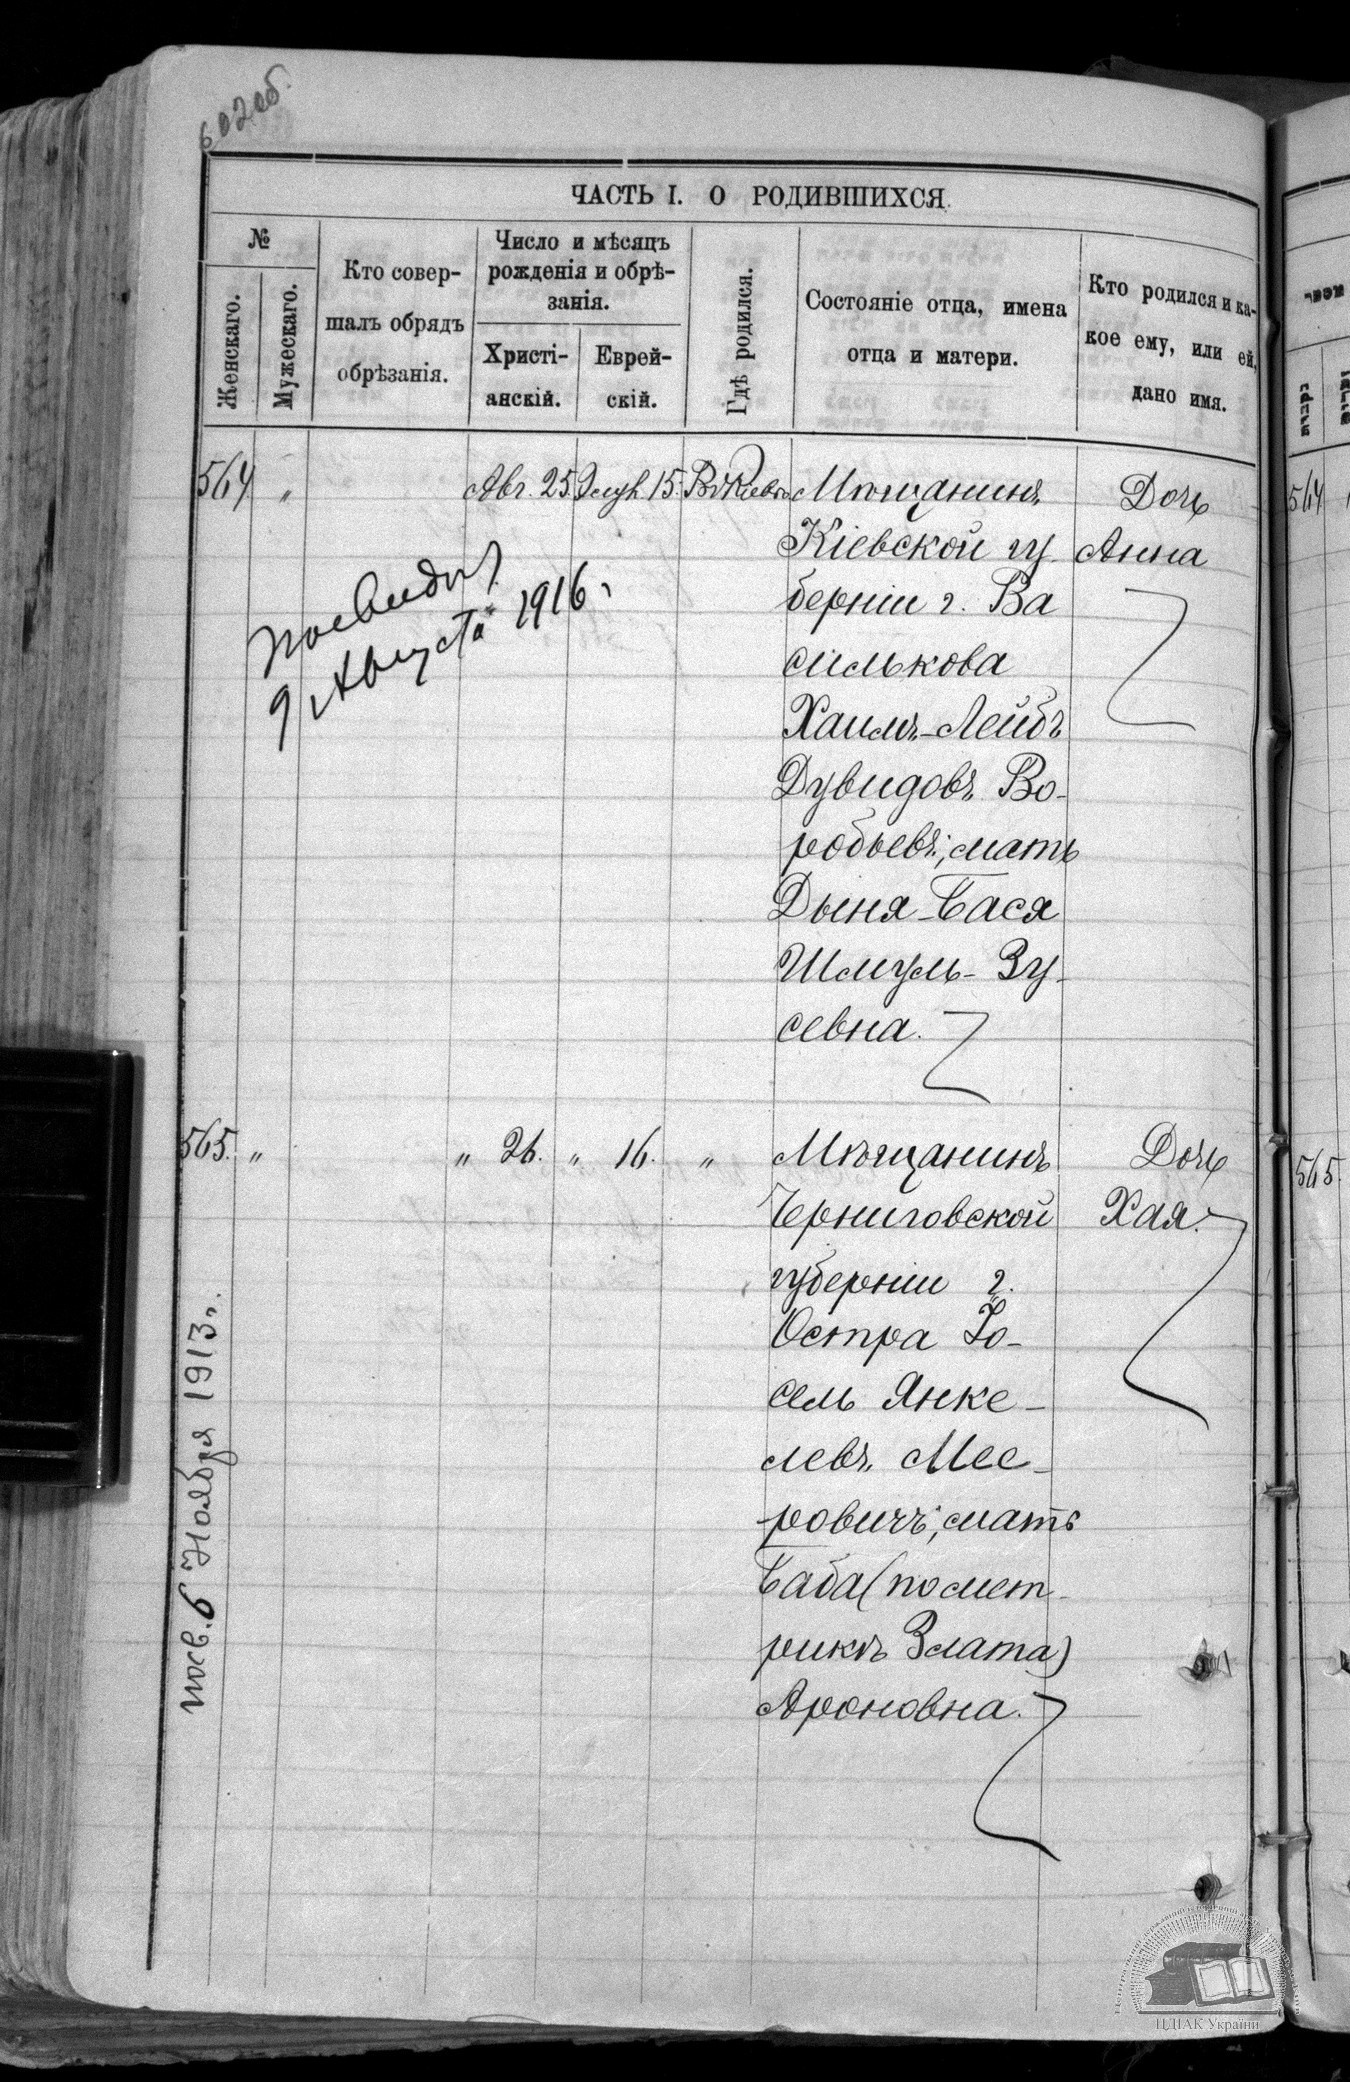 602об.
ЧАСТЬ I. О РОДИВШИХСЯ.
№
Женскаго.
Мужескаго.
Кто совер-
шалъ обрядъ
обрѣзанія.
Число и мѣсяцъ
рожденія и обрѣ-
занія.
Христі-
анскій.
Еврей-
скій.
Гдѣ родился.
Состояніе отца, имена
отца и матери.
Кто родился и ка-
кое ему, или ей,
дано имя.
564 " Авг. 25. Элул. 15. Въ Кіевѣ Мѣщанинъ Дочь
Кіевской гу Анна
берніи г. Ва
силькова
Хаимъ-Лейбъ
Дувидовъ Во-
робьевъ; мать
Дыня-Бася
Шмуль-Зу-
севна.
9 Августа 1916 г.
565. " " 26. " 16. " Мѣщанинъ Дочь
Черниговской Хая.
губерніи г.
Остра Іо-
сель Янке-
левъ Мее-
ровичъ; мать
Баба (по мет-
рикѣ Злата)
Ароновна.
посв. 6 Ноября 1913 г.
564
565.
ЦДІАК України